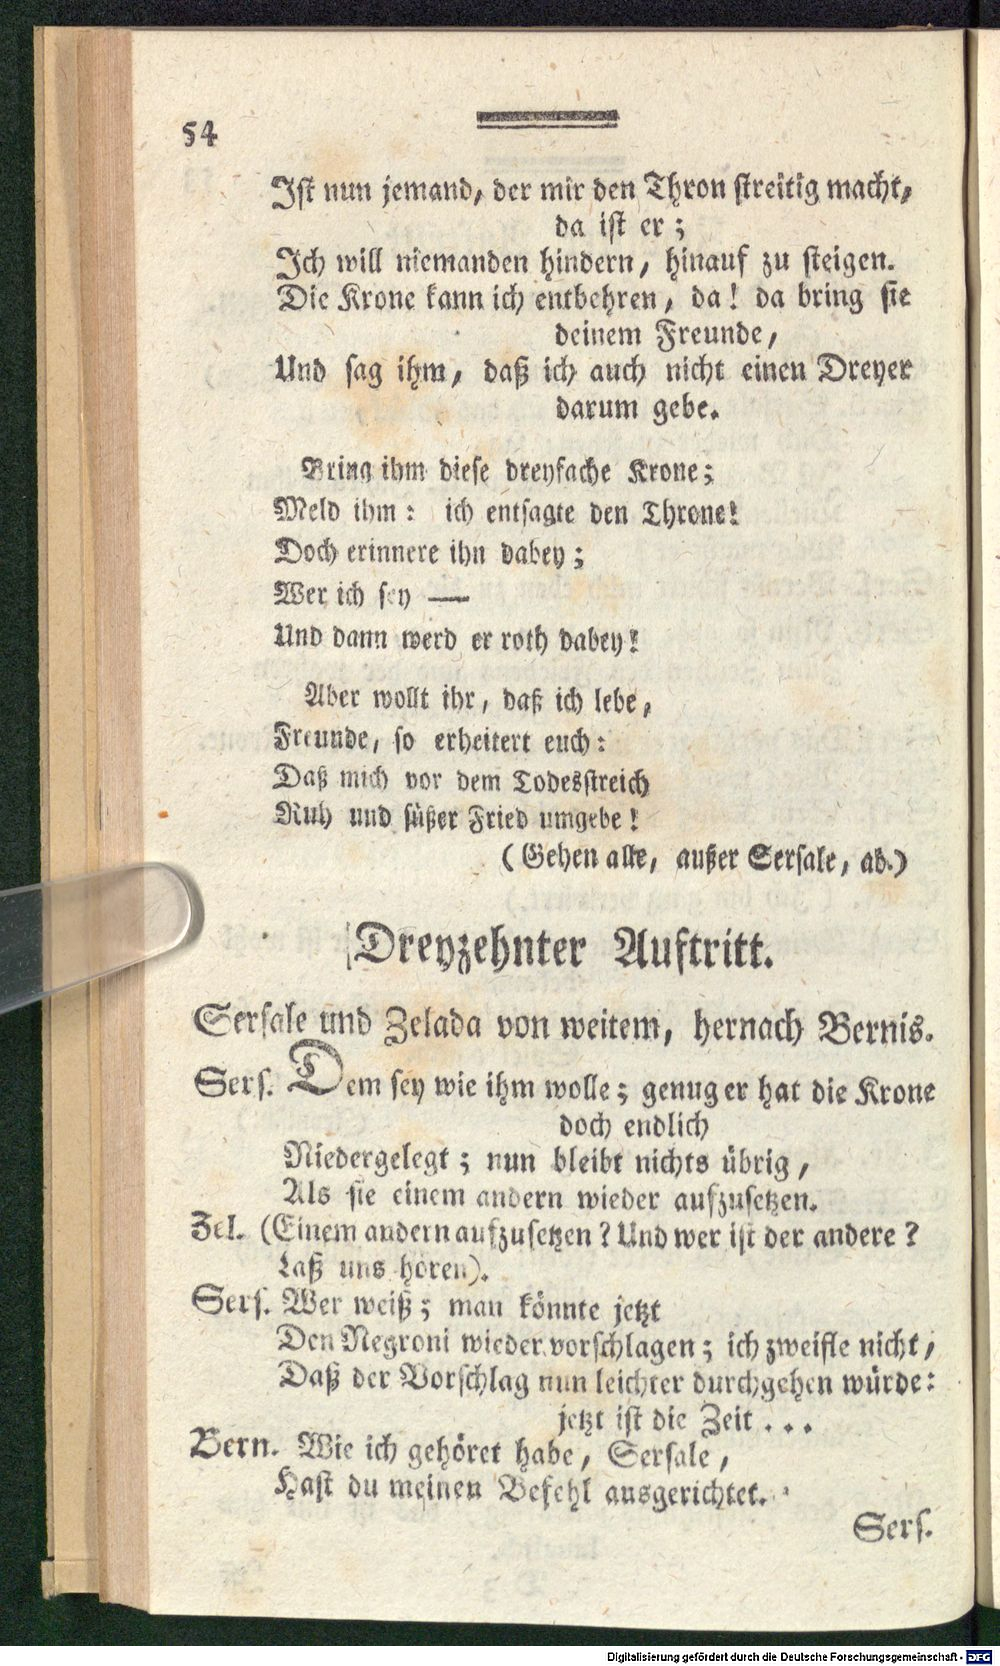 54
Ist nun jemand, der mir den Thron streitig macht,
da ist er;
Ich will niemanden hindern, hinauf zu steigen.
Die Krone kann ich entbehren, da! da bring sie
deinem Freunde,
Und sag ihm, daß ich auch nicht einen Dreyer
darum gebe.
Bring ihm diese dreyfache Krone;
Meld ihm: ich entsagte den Throne!
Doch erinnere ihn dabey;
Wer ich sey —
Und dann werd er roth dabey!
Aber wollt ihr, daß ich lebe,
Freunde, so erheitert euch:
Daß mich vor dem Todesstreich
Ruh und süßer Fried umgebe!
(Gehen alle, außer Sersale, ab.)
Dreyzehnter Auftritt.
Sersale und Zelada von weitem, hernach Bernis.
Sers. Dem sey wie ihm wolle; genug er hat die Krone
doch endlich
Niedergelegt; nun bleibt nichts übrig,
Als sie einem andern wieder aufzusetzen.
Zel. (Einem andern aufzusetzen? Und wer ist der andere?
Laß uns hören).
Sers. Wer weiß; man könnte jetzt
Den Negroni wieder vorschlagen; ich zweifle nicht,
Daß der Vorschlag nun leichter durchgehen würde:
jetzt ist die Zeit . . .
Bern. Wie ich gehöret habe, Sersale,
Hast du meinen Befehl ausgerichtet.
Sers.
Digitalisierung gefördert durch die Deutsche Forschungsgemeinschaft - DFG